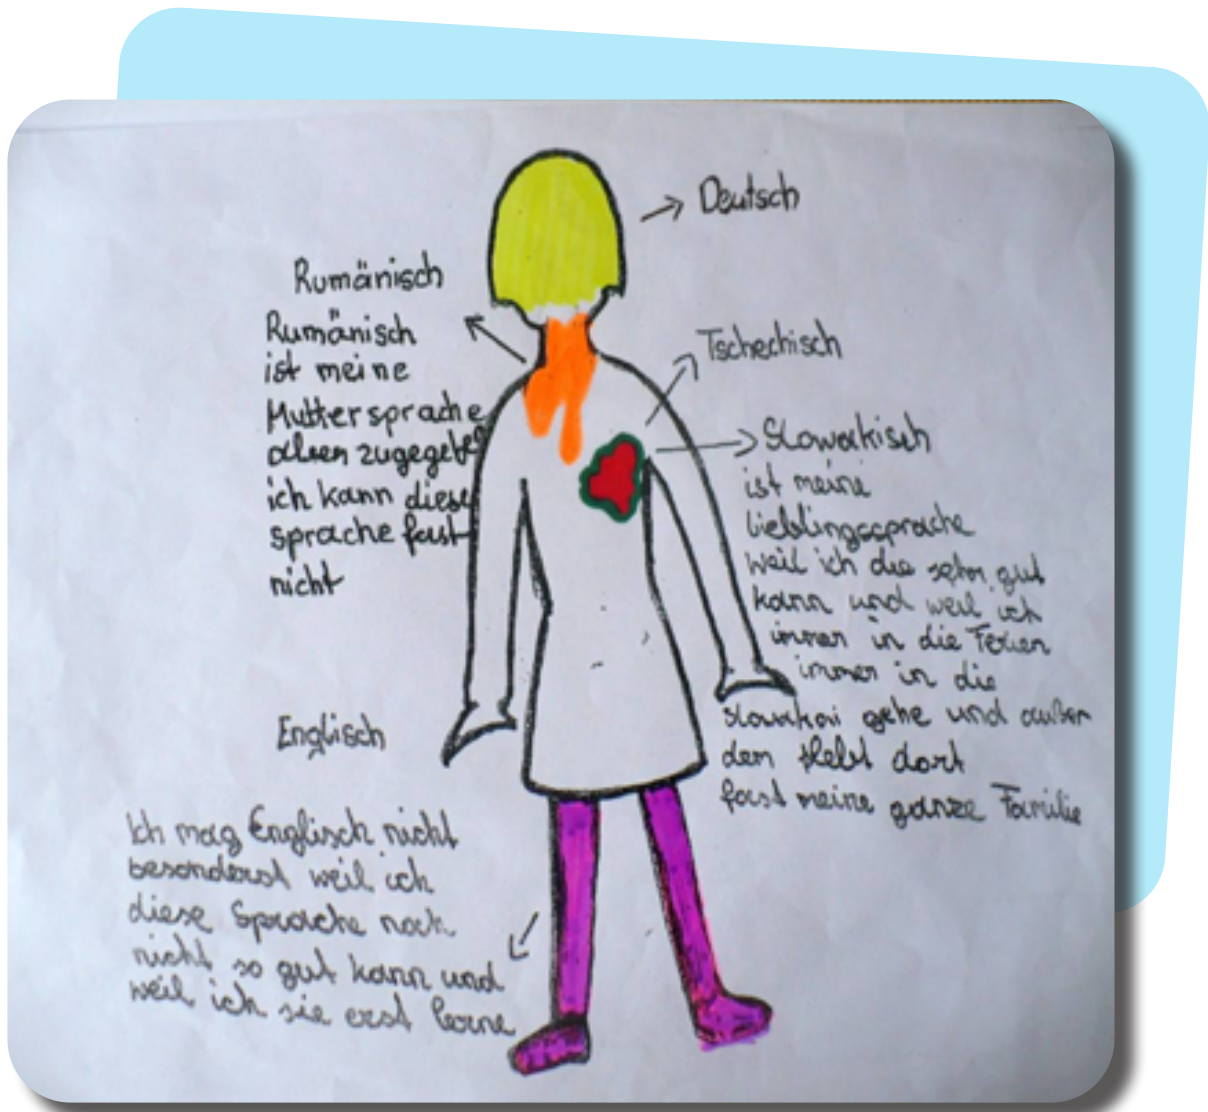 Deutsch
Rumänisch
Rumänisch
ist meine
Muttersprache
aber zugegeben
ich kann diese
sprache fast
nicht
Tschechisch
Slowakisch
ist meine
lieblingssprache
weil ich die sehr gut
kann und weil ich
immer in die Ferien
immer in die
slowakai gehe und außer
dem lebt dort
fast meine ganze Familie
Englisch
Ich mag Englisch nicht
besonderst weil ich
diese Sprache noch
nicht so gut kann und
weil ich sie erst lerne